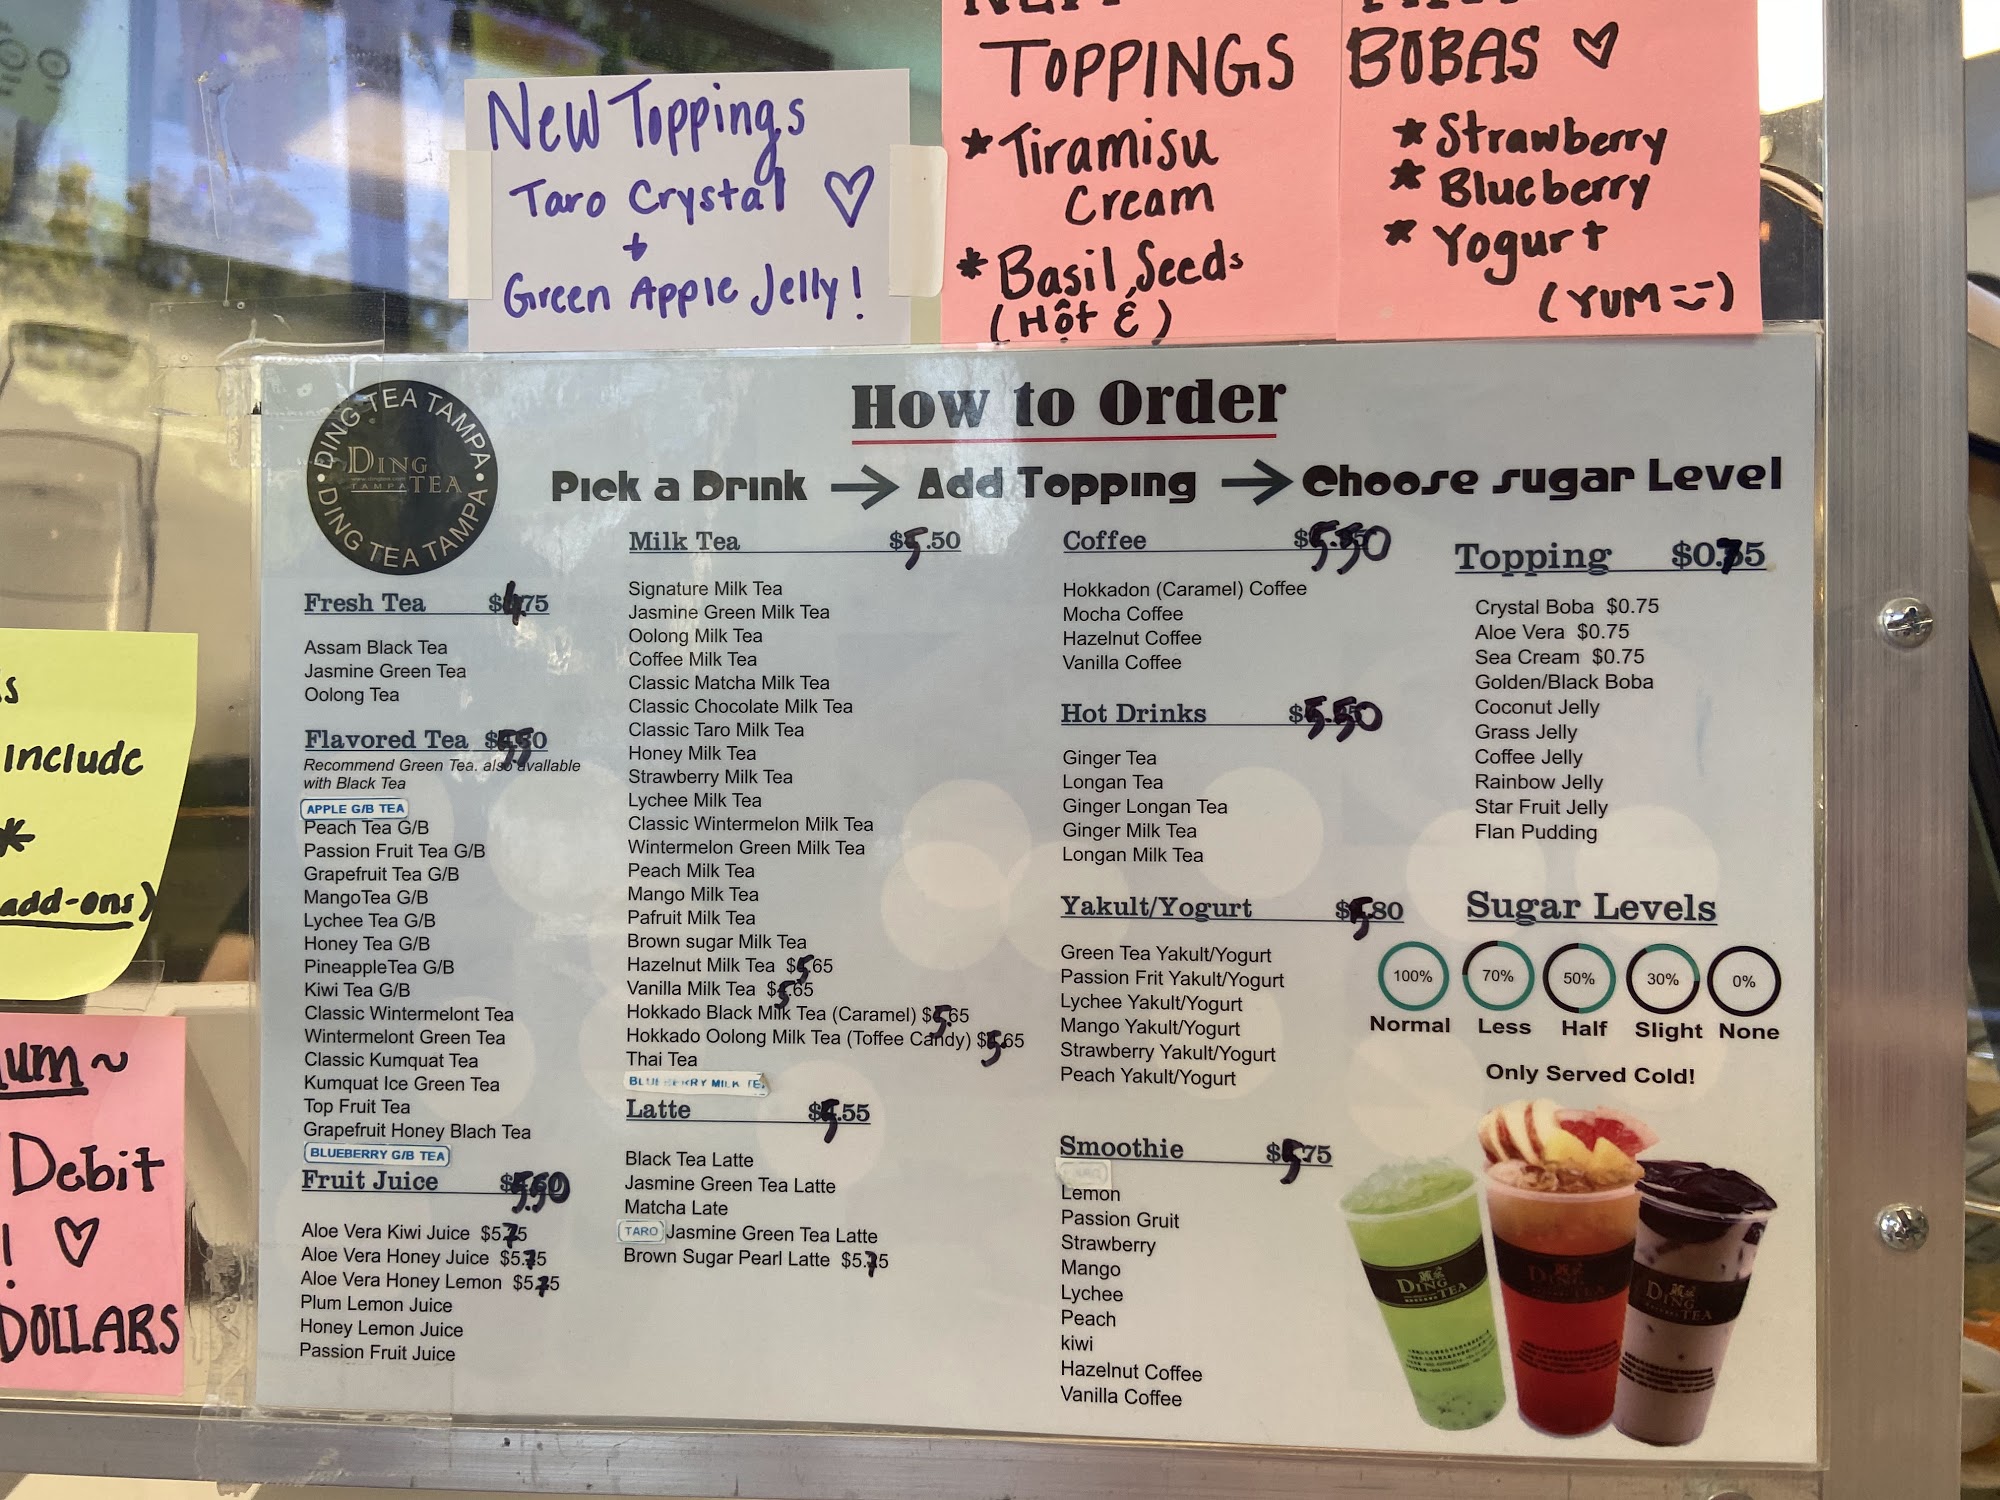 New Toppings
Taro Crystal ♡
+
Green Apple Jelly!
TOPPINGS
* Tiramisu
Cream
* Basil Seeds
(Hột É)
BOBAS ♡
* Strawberry
* Blueberry
* Yogurt
(YUM
include
*
add-ons)
um~
Debit
! ♡
DOLLARS
DING TEA TAMPA
DING
TEA
TAMPA
DING TEA TAMPA
How to Order
Pick a Drink → Add Topping → Choose sugar Level
Fresh Tea $4.75
Assam Black Tea
Jasmine Green Tea
Oolong Tea
Flavored Tea $5.50
Recommend Green Tea. also available
with Black Tea
APPLE G/B TEA
Peach Tea G/B
Passion Fruit Tea G/B
Grapefruit Tea G/B
MangoTea G/B
Lychee Tea G/B
Honey Tea G/B
PineappleTea G/B
Kiwi Tea G/B
Classic Wintermelont Tea
Wintermelont Green Tea
Classic Kumquat Tea
Kumquat Ice Green Tea
Top Fruit Tea
Grapefruit Honey Blach Tea
BLUEBERRY G/B TEA
Fruit Juice $5.50
Aloe Vera Kiwi Juice $5.75
Aloe Vera Honey Juice $5.75
Aloe Vera Honey Lemon $5.75
Plum Lemon Juice
Honey Lemon Juice
Passion Fruit Juice
Milk Tea $5.50
Signature Milk Tea
Jasmine Green Milk Tea
Oolong Milk Tea
Coffee Milk Tea
Classic Matcha Milk Tea
Classic Chocolate Milk Tea
Classic Taro Milk Tea
Honey Milk Tea
Strawberry Milk Tea
Lychee Milk Tea
Classic Wintermelon Milk Tea
Wintermelon Green Milk Tea
Peach Milk Tea
Mango Milk Tea
Pafruit Milk Tea
Brown sugar Milk Tea
Hazelnut Milk Tea $5.65
Vanilla Milk Tea $5.65
Hokkado Black Milk Tea (Caramel) $5.65
Hokkado Oolong Milk Tea (Toffee Candy) $5.65
Thai Tea
BLUEBERRY MILK TEA
Latte $5.55
Black Tea Latte
Jasmine Green Tea Latte
Matcha Late
TARO Jasmine Green Tea Latte
Brown Sugar Pearl Latte $5.75
Coffee $5.50
Hokkadon (Caramel) Coffee
Mocha Coffee
Hazelnut Coffee
Vanilla Coffee
Hot Drinks $5.50
Ginger Tea
Longan Tea
Ginger Longan Tea
Ginger Milk Tea
Longan Milk Tea
Yakult/Yogurt $5.80
Green Tea Yakult/Yogurt
Passion Frit Yakult/Yogurt
Lychee Yakult/Yogurt
Mango Yakult/Yogurt
Strawberry Yakult/Yogurt
Peach Yakult/Yogurt
Smoothie $5.75
Lemon
Passion Gruit
Strawberry
Mango
Lychee
Peach
kiwi
Hazelnut Coffee
Vanilla Coffee
Topping $0.75
Crystal Boba $0.75
Aloe Vera $0.75
Sea Cream $0.75
Golden/Black Boba
Coconut Jelly
Grass Jelly
Coffee Jelly
Rainbow Jelly
Star Fruit Jelly
Flan Pudding
Sugar Levels
100% 70% 50% 30% 0%
Normal Less Half Slight None
Only Served Cold!
DING TEA
DING TEA
DING TEA